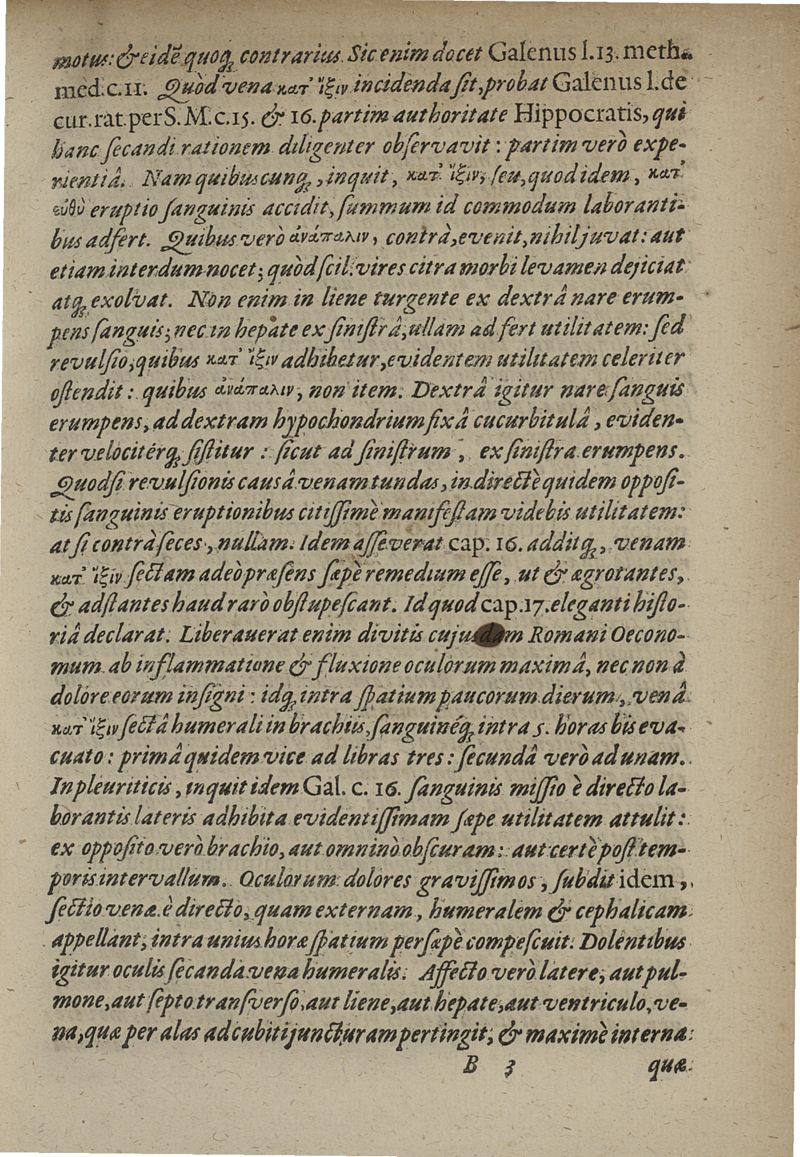 motus: & eidē quoq; contrarius. Sic enim docet Galenus l.13. meth.
med.c.11. Quòd vena κατ᾽ ἴξιν incidenda ſit, probat Galenus l.de
cur.rat.per S.M.c.15. & 16. partim authoritate Hippocratis, qui
hanc ſecandi rationem diligenter obſervavit: partim verò expe-
rientiâ. Nam quibuscunq;, inquit, κατ᾽ ἴξιν, ſeu, quod idem, κατ᾽
εὐθὺ eruptio ſanguinis accidit, ſummum id commodum laboranti-
bus adfert. Quibus verò ἀνάπαλιν, contrà, evenit, nihil juvat: aut
etiam interdum nocet; quòd ſcil. vires citra morbi levamen dejiciat
atq; exolvat. Non enim in liene turgente ex dextrâ nare erum-
pens ſanguis; nec in hepate ex ſiniſtrâ, ullam adfert utilitatem: ſed
revulſio, quibus κατ᾽ ἴξιν adhibetur, evidentem utilitatem celeriter
oſtendit: quibus ἀνάπαλιν, non item. Dextrâ igitur nare ſanguis
erumpens, ad dextram hypochondrium fixâ cucurbitulâ, eviden-
ter velocitérq; ſiſtitur: ſicut ad ſiniſtrum, ex ſiniſtra erumpens.
Quodſi revulſionis causâ venam tundas, in directè quidem oppoſi-
tis ſanguinis eruptionibus citiſſimè manifeſtam videbis utilitatem:
at ſi contrà ſeces, nullam. Idem aſſeverat cap. 16. additq;, venam
κατ᾽ ἴξιν ſectam adeò præſens ſæpè remedium eſſe, ut & ægrotantes,
& adſtantes haud rarò obſtupeſcant. Id quod cap.17. eleganti hiſto-
riâ declarat. Liberauerat enim divitis cujusdam Romani Oecono-
mum ab inflammatione & fluxione oculorum maximâ, nec non à
dolore eorum inſigni: idq; intra ſpatium paucorum dierum, venâ
κατ᾽ ἴξιν ſectâ humerali in brachiis, ſanguinéq; intra 5. horas bis eva-
cuato: primâ quidem vice ad libras tres: ſecundâ verò ad unam.
In pleuriticis, inquit idem Gal. c. 16. ſanguinis miſſio è directo la-
borantis lateris adhibita evidentiſſimam ſæpe utilitatem attulit:
ex oppoſito verò brachio, aut omninò obſcuram: aut certè poſt tem-
poris intervallum. Oculorum dolores graviſſimos, ſubdit idem,
ſectio venæ è directo, quam externam, humeralem & cephalicam
appellant, intra unius horæ ſpatium perſæpè compeſcuit. Dolentibus
igitur oculis ſecanda vena humeralis. Affecto verò latere, aut pul-
mone, aut ſepto tranſverſo, aut liene, aut hepate, aut ventriculo, ve-
na, quæ per alas ad cubiti juncturam pertingit, & maximè interna:
B 3 quæ